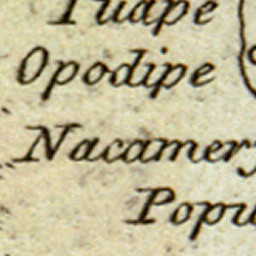 Tuape
Opodipe
Nacamery
Popu